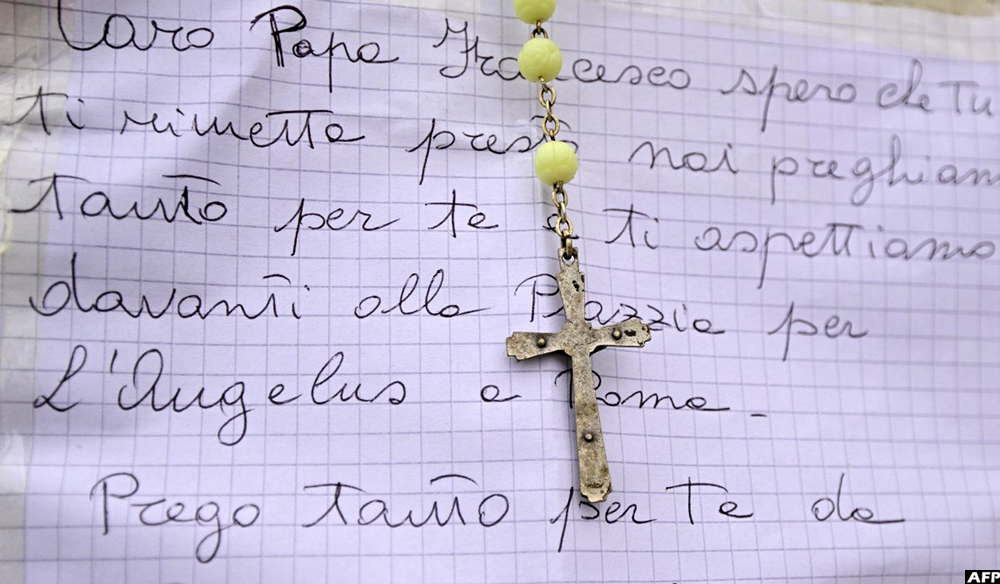 Caro Papa Francesco spero che tu
ti rimetta presto noi preghiam
tanto per te e ti aspettiamo
davanti alla Piazzia per
L'Angelus a Roma.
Prego tanto per Te da
AFP